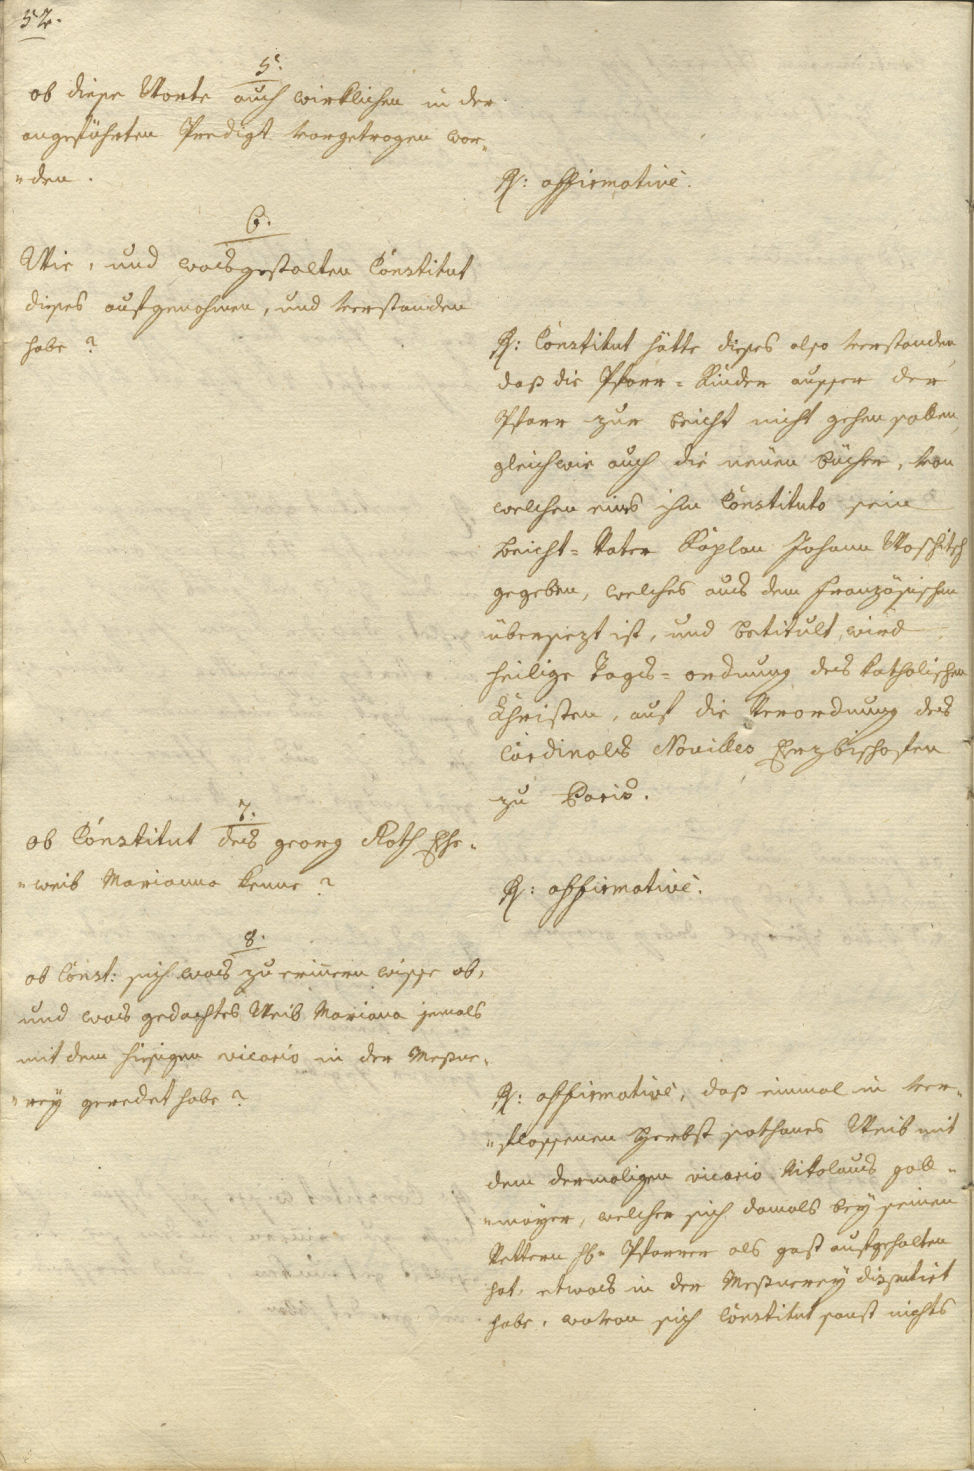 52.
5.
ob diese Worte auch wirklichen in der
angeführten Predigt vorgetragen wor-
-den.
R: affirmativè.
6.
Wie, und wasgestalten Constitut
dieses aufgenohmen, und verstanden
habe?
R: Constitut hätte dieses also verstanden,
daß die Pfarr-Kinder ausser der
Pfarr zur beicht nicht gehen sollen,
gleichwie auch die neüen bücher, von
welchen eins ihm Constituto sein
beicht-Vater Kaplan Johann Waschitsch
gegeben, welches aus dem französischen
übersezt ist, und betitult wird
heilige Tags-ordnung des katholischen
Christen, auf die Verordnung des
Cardinals Novilles Erzbischofen
zu Paris.
7.
ob Constitut des georg Roth Ehe-
-weib Marianna kenne?
R: affirmativè.
8.
ob Const: sich was zu erinern wisse ob,
und was gedachtes Weib Mariana jemals
mit dem hiesigen vicario in der Meßne-
-rey geredet habe?
R: affirmativè, daß einmal in ver-
-flossenen Herbst sothanes Weib mit
dem dermaligen vicario Nikolaus gall-
-mayer, welcher sich damals bey seinen
Vettern Hr. Pfarrer als gast aufgehalten
hat, etwas in der Meßnerey disputirt
habe, wovon sich Constitut sonst nichts